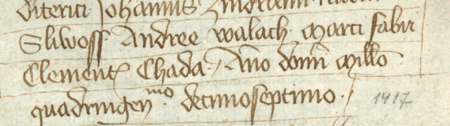 Johannis
Sliwoss Andree walach Marti fabir
Clement Chada Año domi millo
quadringenmo decimoseptimo.
1417